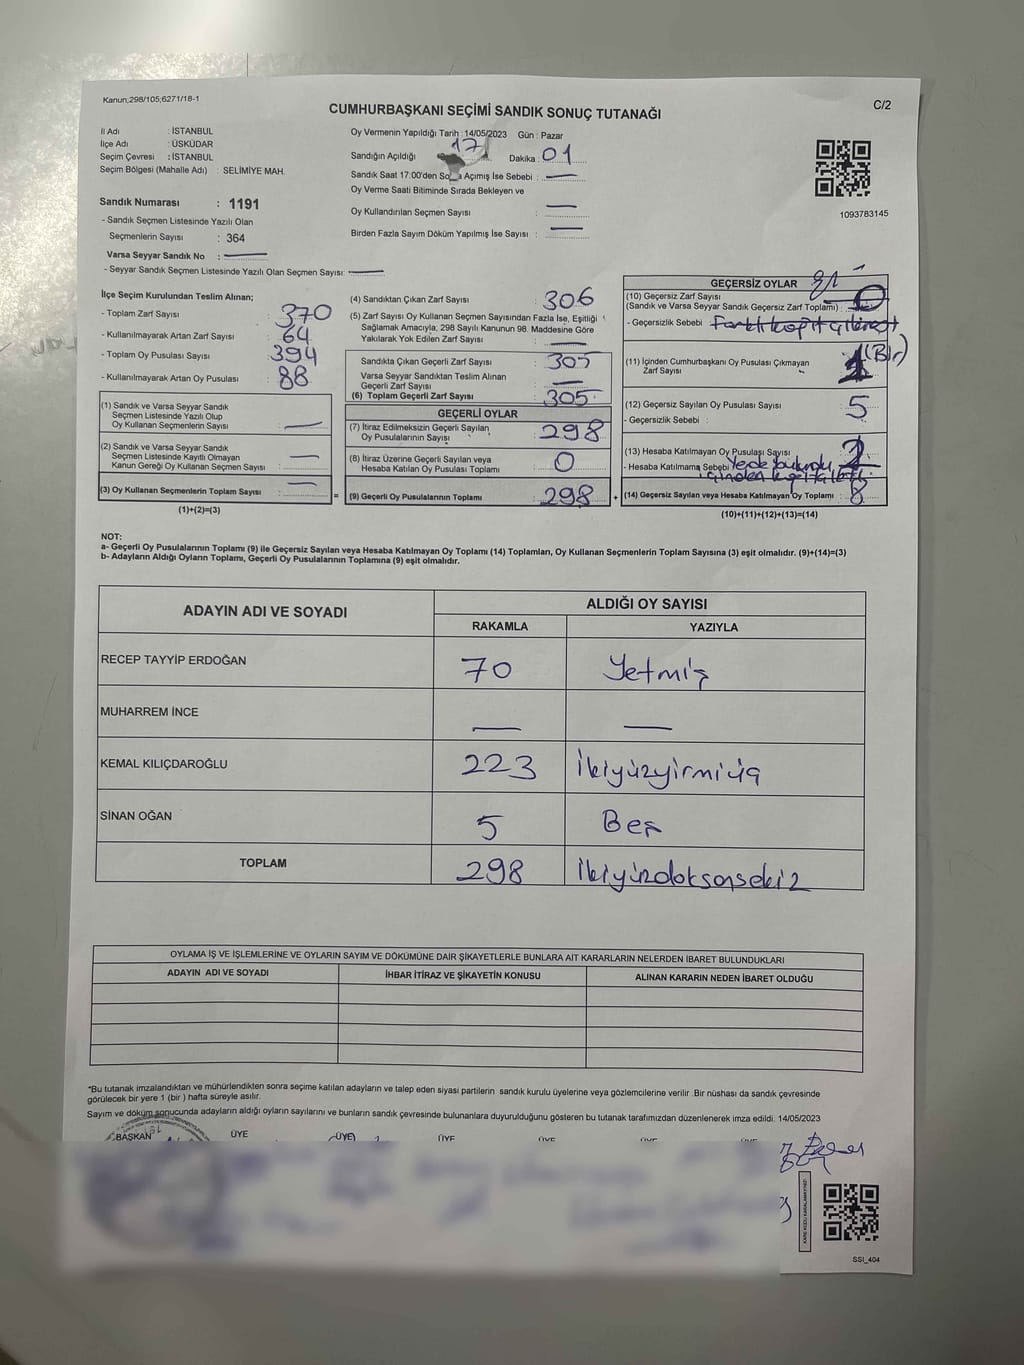 Kanun;298/105;6271/18-1
CUMHURBAŞKANI SEÇİMİ SANDIK SONUÇ TUTANAĞI
C/2
İl Adı : İSTANBUL
İlçe Adı : ÜSKÜDAR
Seçim Çevresi : İSTANBUL
Seçim Bölgesi (Mahalle Adı) : SELİMİYE MAH.
Sandık Numarası : 1191
- Sandık Seçmen Listesinde Yazılı Olan
Seçmenlerin Sayısı : 364
Varsa Seyyar Sandık No : —
- Seyyar Sandık Seçmen Listesinde Yazılı Olan Seçmen Sayısı: —
Oy Vermenin Yapıldığı Tarih : 14/05/2023 Gün : Pazar
Sandığın Açıldığı 17 Dakika : 01
Sandık Saat 17:00'den Açımış İse Sebebi : —
Oy Verme Saati Bitiminde Sırada Bekleyen ve
Oy Kullandırılan Seçmen Sayısı : —
Birden Fazla Sayım Döküm Yapılmış İse Sayısı : —
1093783145
İlçe Seçim Kurulundan Teslim Alınan;
- Toplam Zarf Sayısı : 370
- Kullanılmayarak Artan Zarf Sayısı : 64
- Toplam Oy Pusulası Sayısı : 394
- Kullanılmayarak Artan Oy Pusulası : 88
(1) Sandık ve Varsa Seyyar Sandık
Seçmen Listesinde Yazılı Olup
Oy Kullanan Seçmenlerin Sayısı : —
(2) Sandık ve Varsa Seyyar Sandık
Seçmen Listesinde Kayıtlı Olmayan
Kanun Gereği Oy Kullanan Seçmen Sayısı : —
(3) Oy Kullanan Seçmenlerin Toplam Sayısı : —
(1)+(2)=(3)
(4) Sandıktan Çıkan Zarf Sayısı : 306
(5) Zarf Sayısı Oy Kullanan Seçmen Sayısından Fazla İse, Eşitliği
Sağlamak Amacıyla, 298 Sayılı Kanunun 98. Maddesine Göre
Yakılarak Yok Edilen Zarf Sayısı : —
Sandıkta Çıkan Geçerli Zarf Sayısı : 305
Varsa Seyyar Sandıktan Teslim Alınan
Geçerli Zarf Sayısı : —
(6) Toplam Geçerli Zarf Sayısı : 305
GEÇERLİ OYLAR
(7) İtiraz Edilmeksizin Geçerli Sayılan
Oy Pusulalarının Sayısı : 298
(8) İtiraz Üzerine Geçerli Sayılan veya
Hesaba Katılan Oy Pusulası Toplamı : 0
= (9) Geçerli Oy Pusulalarının Toplamı : 298
GEÇERSİZ OYLAR
(10) Geçersiz Zarf Sayısı
(Sandık ve Varsa Seyyar Sandık Geçersiz Zarf Toplamı) : 0
- Geçersizlik Sebebi :
(11) İçinden Cumhurbaşkanı Oy Pusulası Çıkmayan
Zarf Sayısı : 1 (Bir)
(12) Geçersiz Sayılan Oy Pusulası Sayısı : 5
- Geçersizlik Sebebi :
(13) Hesaba Katılmayan Oy Pusulası Sayısı : 2
- Hesaba Katılmama Sebebi
+ (14) Geçersiz Sayılan veya Hesaba Katılmayan Oy Toplamı : 8
(10)+(11)+(12)+(13)=(14)
NOT:
a- Geçerli Oy Pusulalarının Toplamı (9) ile Geçersiz Sayılan veya Hesaba Katılmayan Oy Toplamı (14) Toplamları, Oy Kullanan Seçmenlerin Toplam Sayısına (3) eşit olmalıdır. (9)+(14)=(3)
b- Adayların Aldığı Oyların Toplamı, Geçerli Oy Pusulalarının Toplamına (9) eşit olmalıdır.
ADAYIN ADI VE SOYADI
ALDIĞI OY SAYISI
RAKAMLA YAZIYLA
RECEP TAYYİP ERDOĞAN 70 Yetmiş
MUHARREM İNCE — —
KEMAL KILIÇDAROĞLU 223 İkiyüzyirmiüç
SİNAN OĞAN 5 Beş
TOPLAM 298 İkiyüzdoksansekiz
OYLAMA İŞ VE İŞLEMLERİNE VE OYLARIN SAYIM VE DÖKÜMÜNE DAİR ŞİKAYETLERLE BUNLARA AİT KARARLARIN NELERDEN İBARET BULUNDUKLARI
ADAYIN ADI VE SOYADI İHBAR İTİRAZ VE ŞİKAYETİN KONUSU ALINAN KARARIN NEDEN İBARET OLDUĞU
*Bu tutanak imzalandıktan ve mühürlendikten sonra seçime katılan adayların ve talep eden siyasi partilerin sandık kurulu üyelerine veya gözlemcilerine verilir .Bir nüshası da sandık çevresinde
görülecek bir yere 1 (bir ) hafta süreyle asılır.
Sayım ve döküm sonucunda adayların aldığı oyların sayılarını ve bunların sandık çevresinde bulunanlara duyurulduğunu gösteren bu tutanak tarafımızdan düzenlenerek imza edildi. 14/05/2023
BAŞKAN ÜYE ÜYE ÜYE ÜYE ÜYE ÜYE
SSI_404